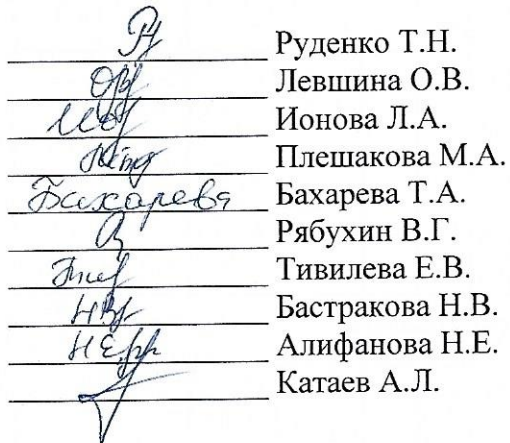 Руденко Т.Н.
Левшина О.В.
Ионова Л.А.
Плешакова М.А.
Бахарева Бахарева Т.А.
Рябухин В.Г.
Тивилева Е.В.
Бастракова Н.В.
Алифанова Н.Е.
Катаев А.Л.